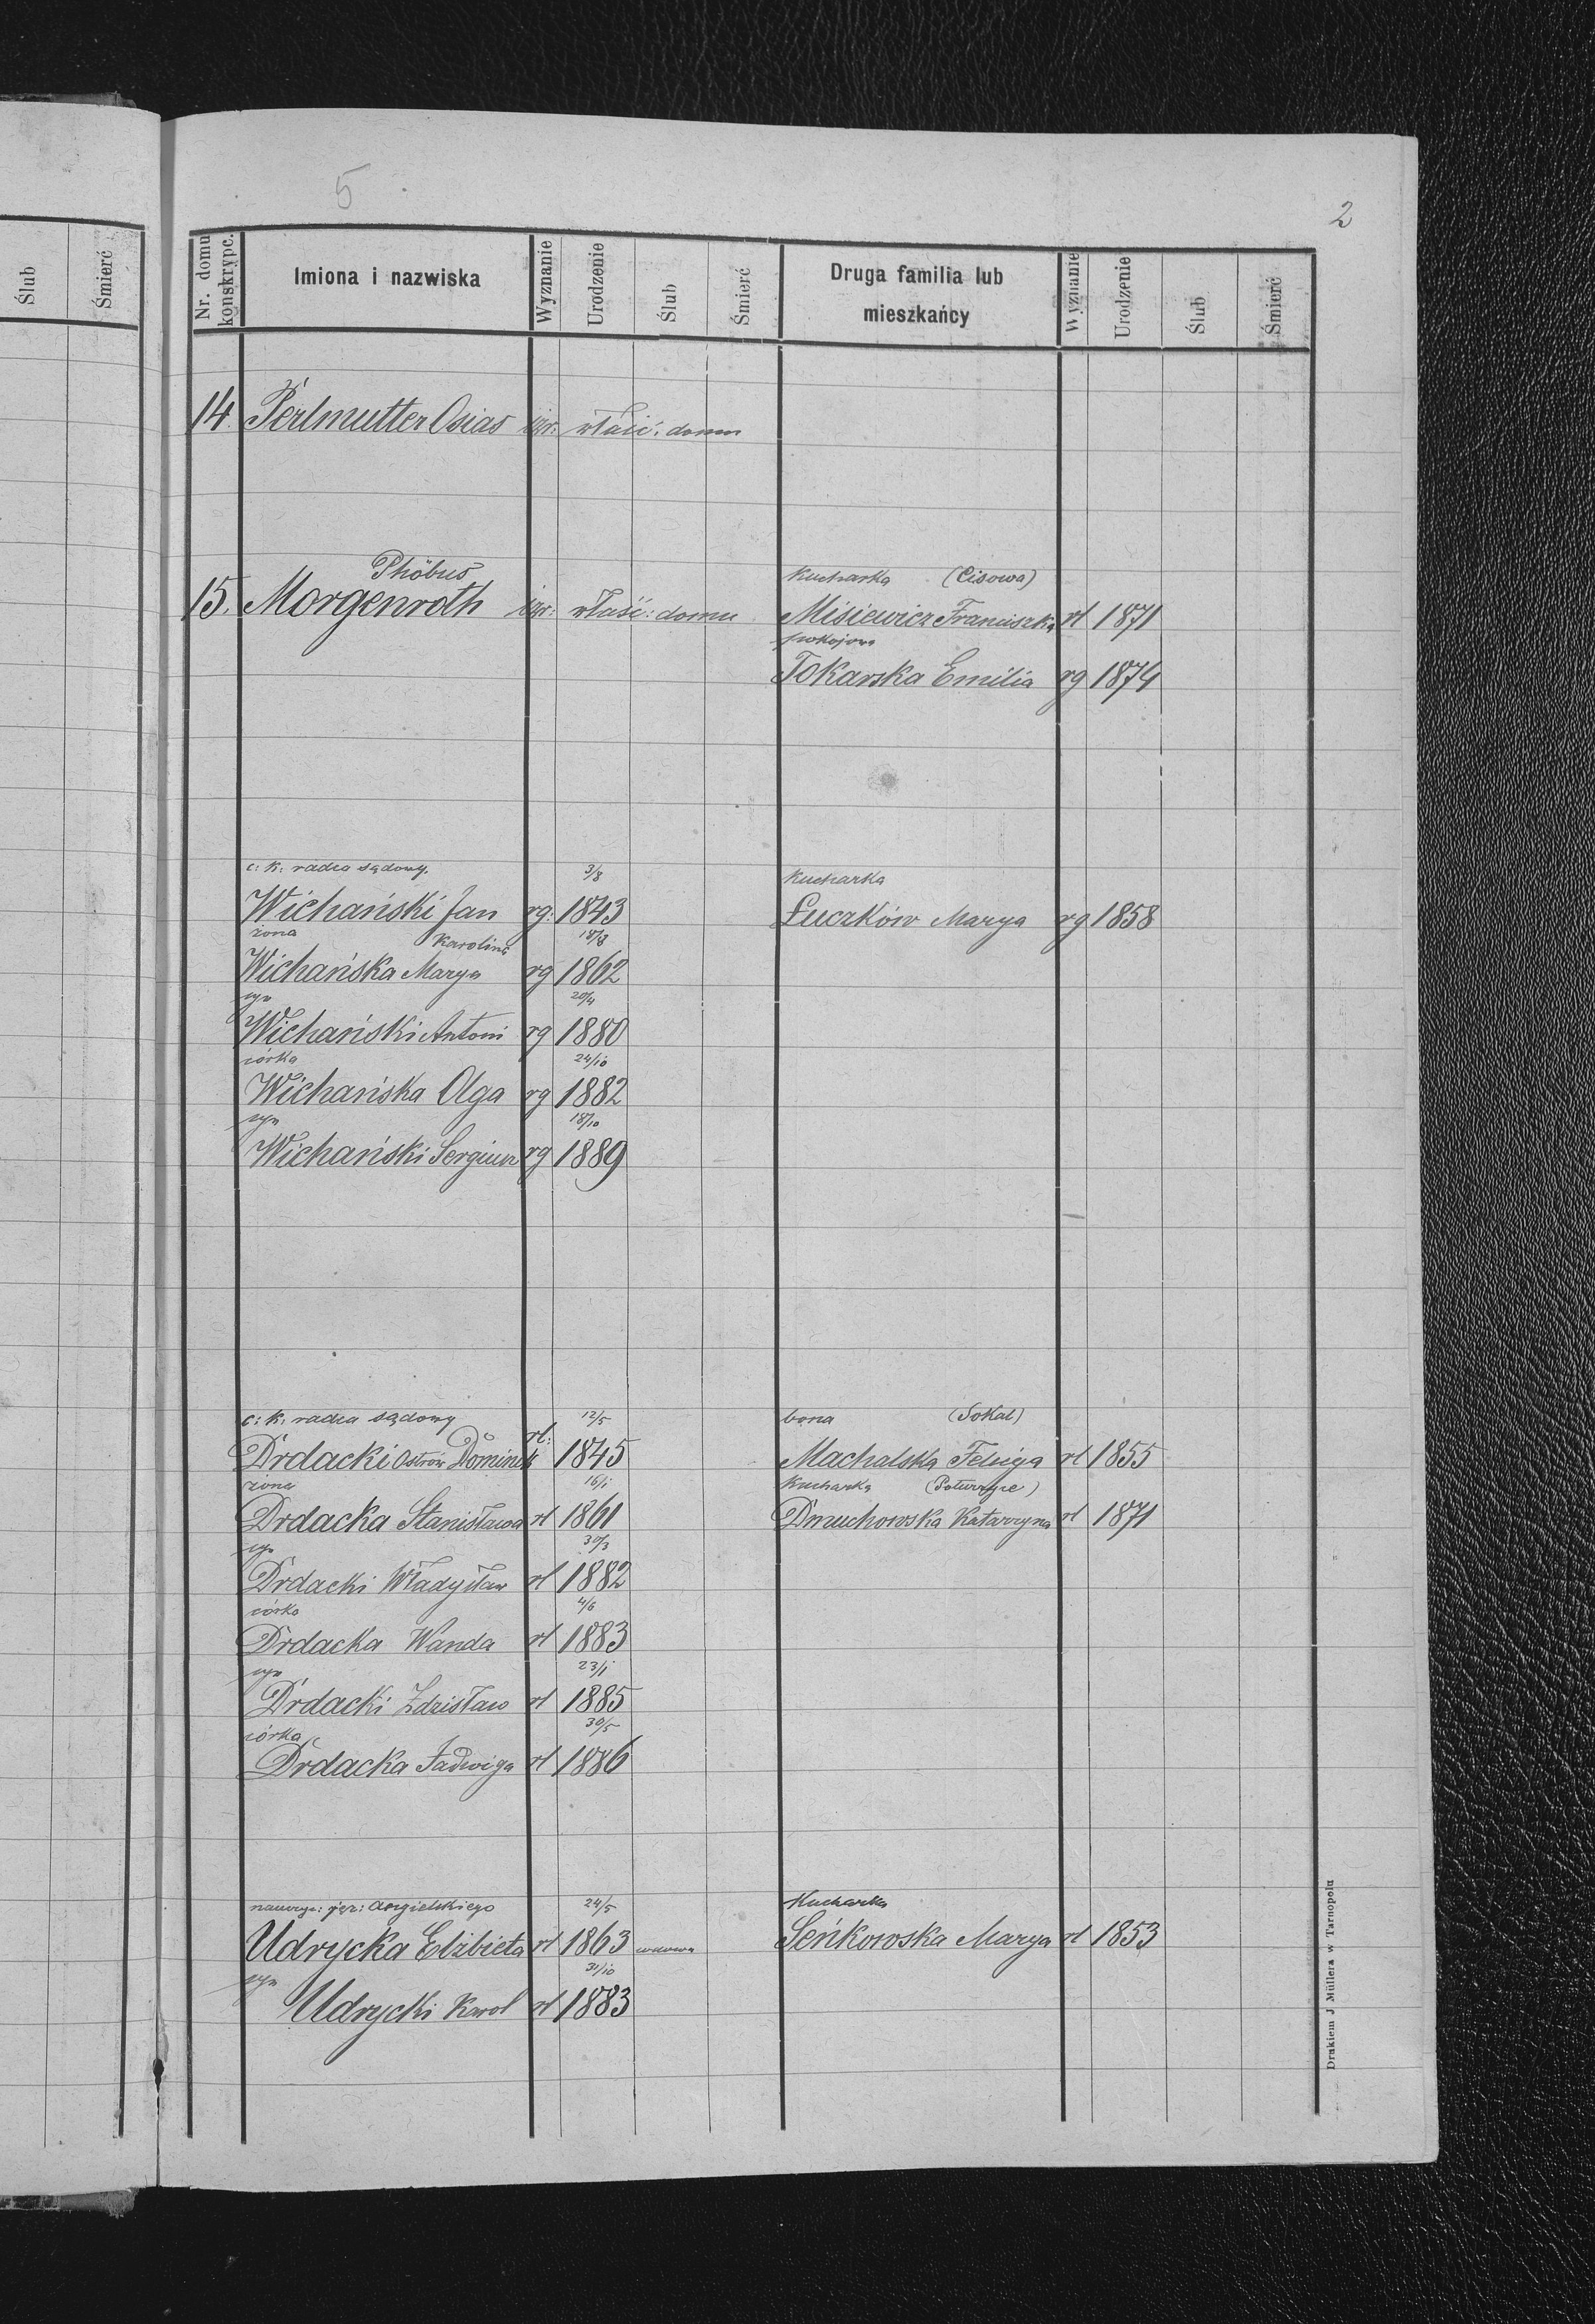 5
2
Ślub
Śmierć
Nr. domu konskrypc.
Imiona i nazwiska
Wyznanie
Urodzenie
Ślub
Śmierć
Druga familia lub mieszkańcy
Wyznanie
Urodzenie
Ślub
Śmierć
14. Perlmutter Osias izr: właść: domu
Phöbus
Kucharka (Cisowa)
15. Morgenroth izr: właść: domu Misiewicz Franciszka rł 1871
pokojowa
Tokarska Emilia rg 1874
c: k: radca sądowy. 3/8 Kucharka
Wichański Jan rg: 1843 Łuczków Marya rg 1858
żona Karolina 18/8
Wichańska Marya rg 1862
syn 20/4
Wichański Antoni rg 1880
córka 24/10
Wichańska Olga rg 1882
syn 18/10
Wichański Sergiusz rg 1889
c: k: radca sądowy 12/5 bona (Sokal)
Drdacki Ostrów Dominik rł: 1845 Machalska Feliciga rł 1855
żona 16/1 Kucharka (Poturzyce)
Drdacka Stanisława rł 1861 Dmuchowska Katarzyna rł 1871
syn 30/3
Drdacki Władysław rł 1882
córka 4/6
Drdacka Wanda rł 1883
syn 23/1
Drdacki Zdzisław rł 1885
córka 30/5
Drdacka Jadwiga rł 1886
nauczyc: jęz: angielskiego 24/5 Kucharka
Udrycka Elżbieta rł 1863 wdowa Seńkowska Marya rł 1853
syn 31/10
Udrycki Karol rł 1883
Drukiem J Müllera w Tarnopolu